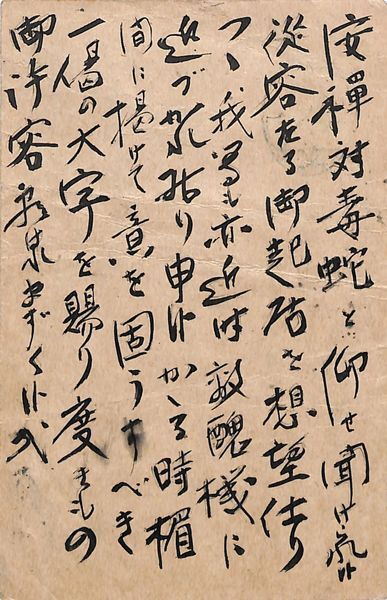 安禪対毒蛇と仰せ聞け
従容たる御起居を想望仕り
つゝ我等も亦近時敵醜機に
近づかれ居り申候かゝる時楣
間に掲げて意を固うすべき
一偈の大字を賜り度きもの
御許容